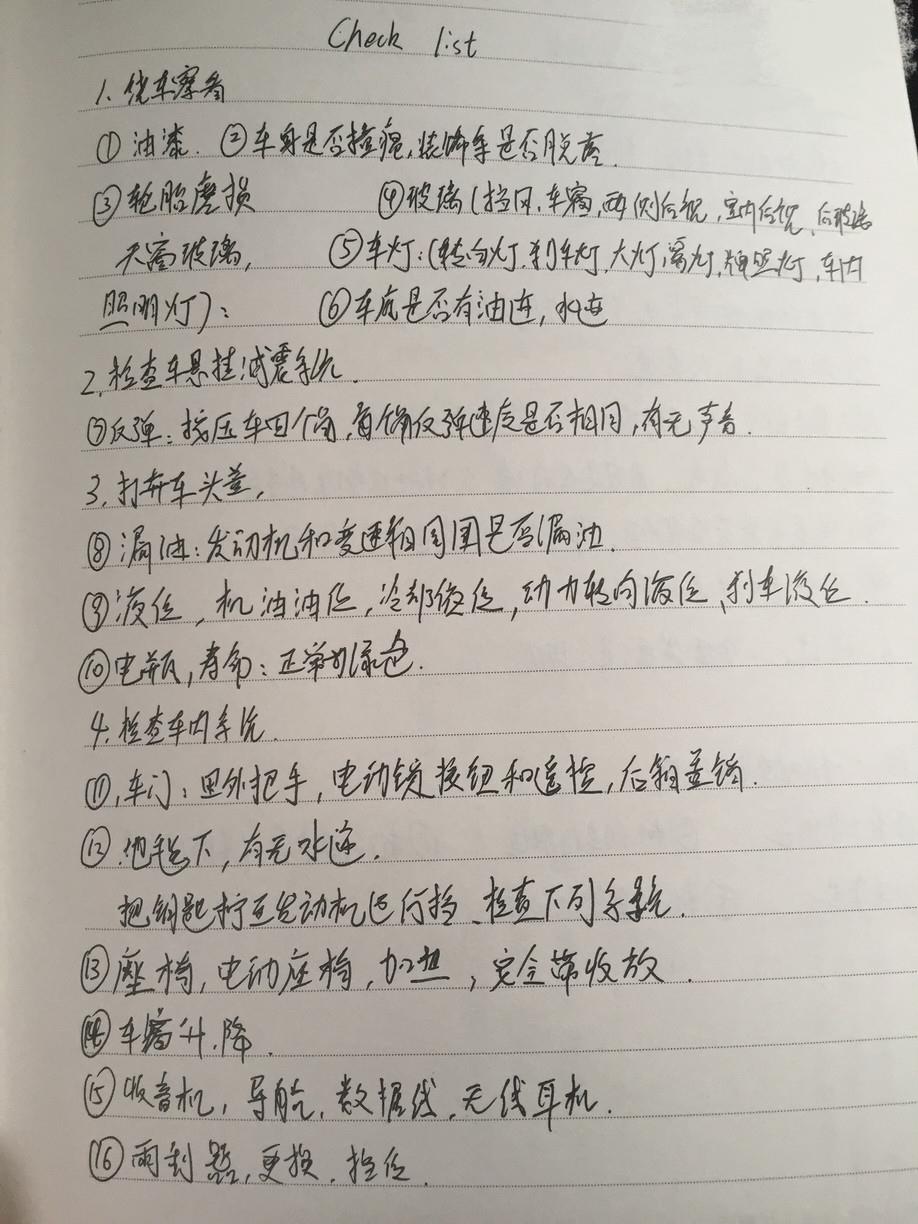 Check list
1. 绕车察看
① 油漆. ②车身是否撞痕,装饰条是否脱落.
③轮胎磨损 ④玻璃(挡风,车窗,两侧后视,室内后视,后玻璃
天窗玻璃, ⑤车灯:(转向灯.刹车灯,大灯,雾灯,牌照灯,车内
照明灯): ⑥车底是否有油迹,水迹
2.检查车悬挂减震系统.
⑦反弹:按压车四个角,每个角反弹速度是否相同,有无声音.
3.打开车头盖,
⑧漏油:发动机和变速箱周围是否漏油.
⑨液位,机油油位,冷却液位,动力转向液位、刹车液位.
⑩电瓶,寿命:正常为绿色.
4.检查车内系统.
⑪,车门:里外把手,电动锁按钮和遥控,后箱盖锁.
⑫.地毯下,有无水迹.
把钥匙拧至发动机运行挡、检查下列子系统.
⑬座椅,电动座椅,加热,安全带收放.
⑭车窗升.降.
⑮收音机,导航,数据线,无线耳机.
⑯雨刮器,更换.挡位.